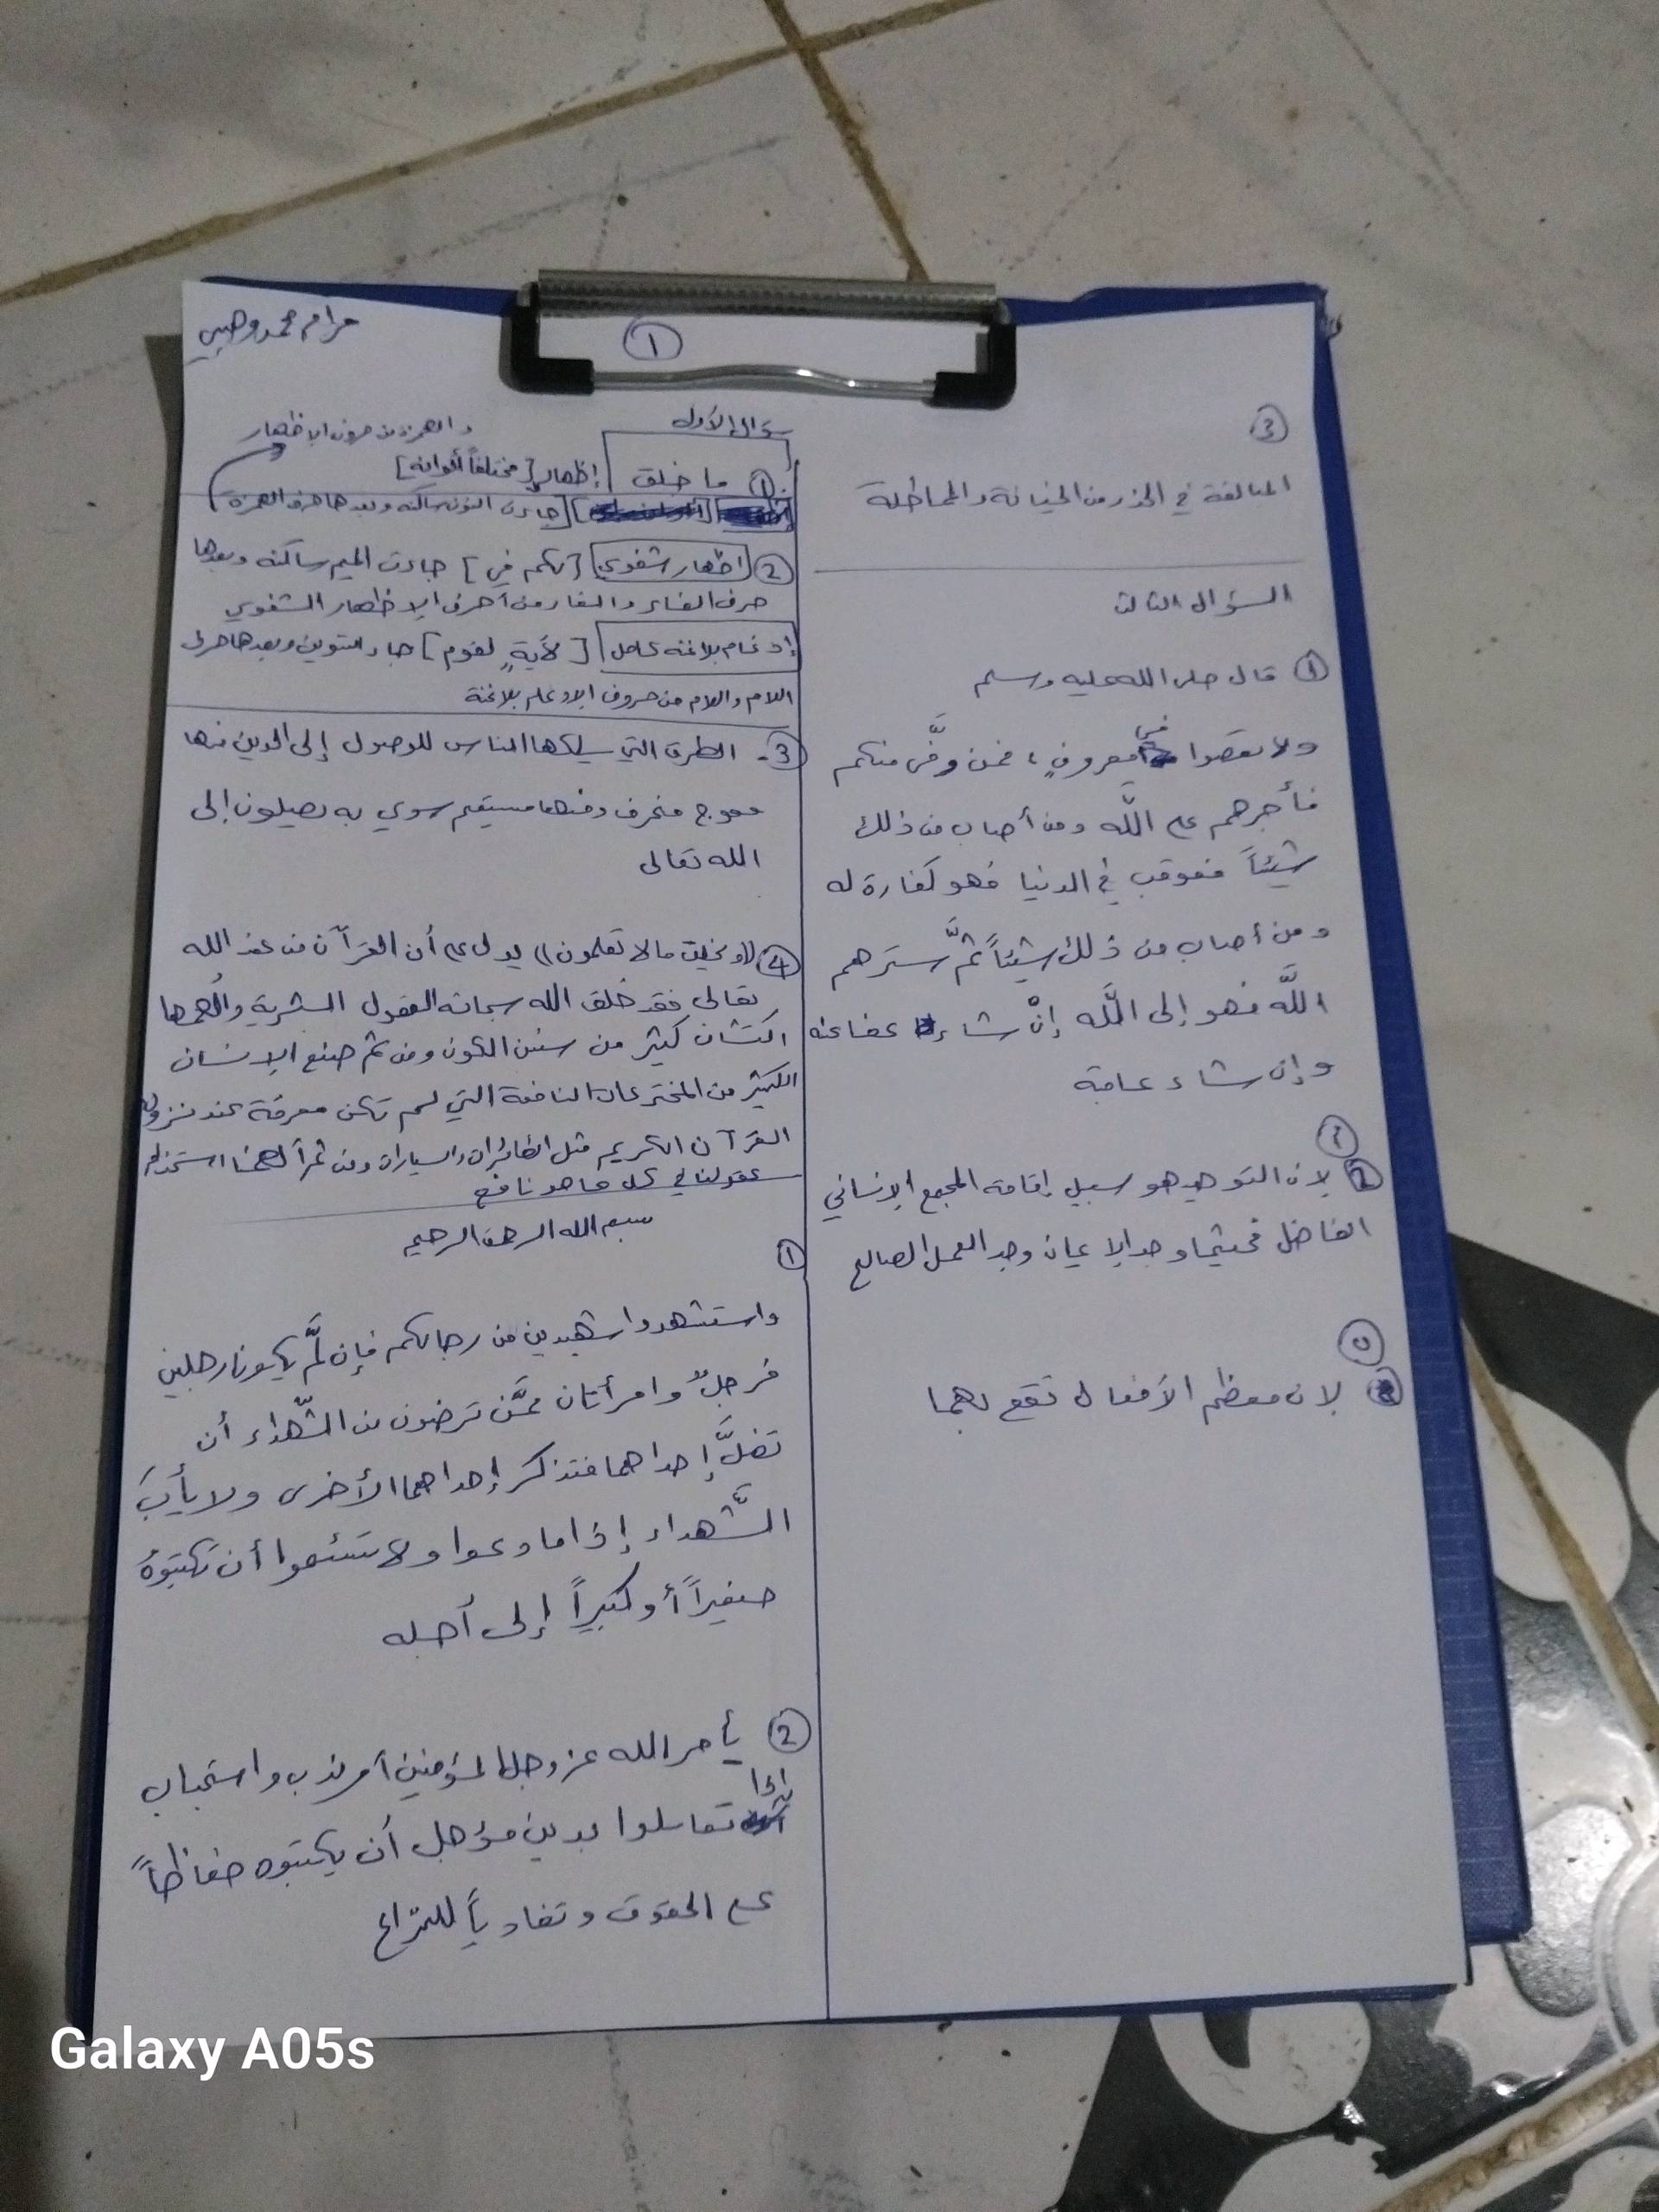 مرام محمد وهبي
١
سؤال الأول
① ما خلق
إظهار [مختلفاً ألوانه]
والهمزة من حروف الإظهار
جاءت النون ساكنه وبعدها حرف الهمزة
② اظهار شفوي [لكم في] جاءت الميم ساكنه وبعدها
حرف الفاء والفاء من أحرف الإظهار الشفوي
إدغام بلا غنه كامل [لآيةٍ لقوم] جاء التنوين وبعدها حرف
اللام واللام من حروف الإدغام بلاغنة
③- الطرق التي يسلكها الناس للوصول إلى الدين منها
معوج منحرف ومنها مستقيم سوي به يصلون إلى
الله تعالى
④ ((ويخلق مالا تعلمون)) يدل على أن القرآن من عند الله
تعالى فقد خلق الله سبحانه العقول البشرية وألهمها
اكتشاف كثير من سنن الكون ومن ثم صنع الإنسان
الكثير من المخترعات النافعة التي لم تكن معرفة عند نزول
القرآن الكريم مثل الطائرات والسيارات ومن ثم ألهمنا استخدام
عقولنا في كل ماهو نافع
بسم الله الرحمن الرحيم
①
واستشهدوا شهيدين من رجالكم فإن لَّم يكونا رجلين
فرجلٌ وامرأتان ممَّن ترضون من الشّهداء أن
تضلَّ إحداهما فتذكر إحداهما الأخرى ولا يأبَ
الشُّهداء إذا ما دعوا ولا تسئموا أن تكتبوهُ
صغيراً أو كبيراً إلى أجله
② يأمر الله عز وجل المؤمنين أمر ندب واستحباب
إذا
تعاملوا بدين مؤجل أن يكتبوه حفاظاً
على الحقوق وتفادياً للنزاع
③
المبالغة في الحذر من الخيانة والمماطلة
السؤال الثالث
① قال صلى الله عليه وسلم
ولا تعصوا في معروفٍ، فمن وفَّى منكم
فأجرهم على اللَّه ومن أصاب من ذلك
شيئاً فعوقب في الدنيا فهو كفارة له
ومن أصاب من ذلك شيئاً ثمَّ سترهم
اللَّه فهو إلى اللَّه إنْ شاء عفا عنه
وإن شاء عاقبة
②
لان التوحيد هو سبيل إقامة المجمع الإنساني
الفاضل فحيثما وجد الإيمان وجد العمل الصالح
لان معظم الأفعال تقع بهما
Galaxy A05s